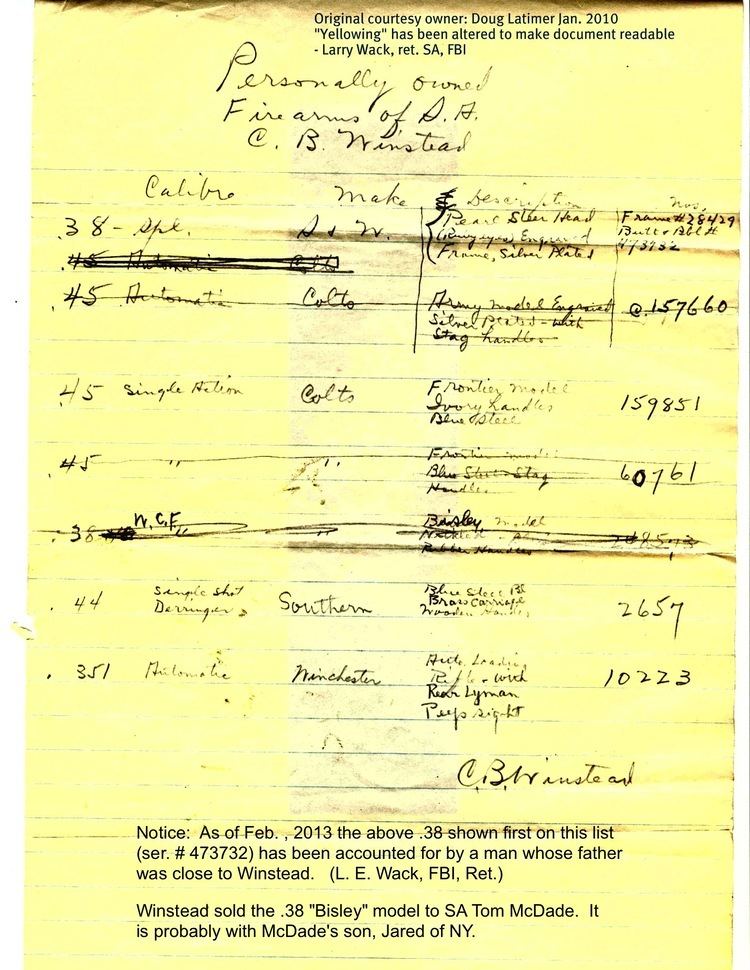 Original courtesy owner: Doug Latimer Jan. 2010
"Yellowing" has been altered to make document readable
- Larry Wack, ret. SA, FBI
Personally owned
Firearms of S.A.
C. B. Winstead
Calibre Make Description Nos.
.38 - Spl. S & W. Pearl Steer Head Frame# 28429
Engraved Butt & Bbl #
Frame, Silver Plated 473732
.45 Automatic Colts
.45 Automatic Colts Army Model Engraved C.157660
Silver Plated - with
Stag handles
.45 Single Action Colts Frontier Model 159851
Ivory handles
Blue Steel
.45 " " Frontier model 60761
Blue Steel Stag
Handles
.38 W.C.F. " " Bisley Model
Rubber Handles
.44 Single Shot Southern Blue Steel Bl 2657
Derringer Brass Carriage
Wooden Handles
.351 Automatic Winchester Auto Loading 10223
Rifle - with
Rear Lyman
Peep sight
C.B. Winstead
Notice: As of Feb. , 2013 the above .38 shown first on this list
(ser. # 473732) has been accounted for by a man whose father
was close to Winstead. (L. E. Wack, FBI, Ret.)
Winstead sold the .38 "Bisley" model to SA Tom McDade. It
is probably with McDade's son, Jared of NY.